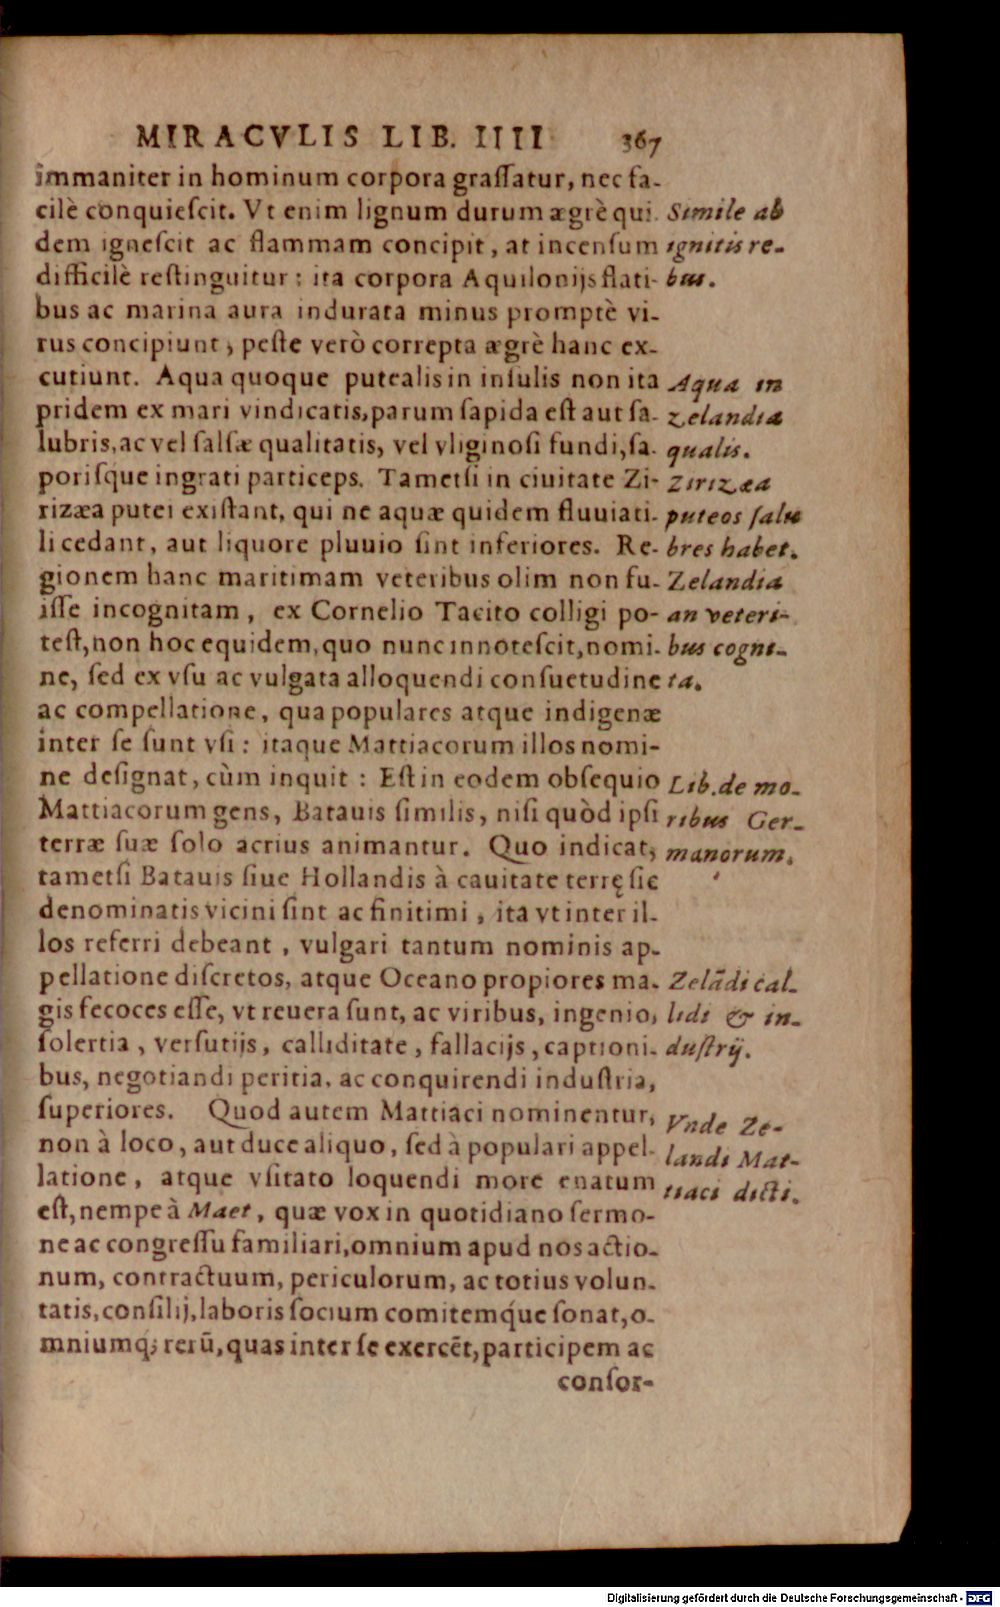 MIRACVLIS LIB. IIII 367
immaniter in hominum corpora graſſatur, nec fa-
cilè conquieſcit. Vt enim lignum durum ægrè qui
dem igneſcit ac flammam concipit, at incenſum
difficilè reſtinguitur: ita corpora Aquilonijs flati-
bus ac marina aura indurata minus promptè vi-
rus concipiunt, peſte verò correpta ægrè hanc ex-
cutiunt. Aqua quoque putealis in inſulis non ita
pridem ex mari vindicatis, parum ſapida eſt aut ſa-
lubris, ac vel ſalſæ qualitatis, vel vliginoſi fundi, ſa-
poriſque ingrati particeps. Tametſi in ciuitate Zi-
rizæa putei exiſtant, qui ne aquæ quidem fluuiati-
li cedant, aut liquore pluuio ſint inferiores. Re-
gionem hanc maritimam veteribus olim non fu-
iſſe incognitam, ex Cornelio Tacito colligi po-
teſt, non hoc equidem, quo nunc innoteſcit, nomi-
ne, ſed ex vſu ac vulgata alloquendi conſuetudine
ac compellatione, qua populares atque indigenæ
inter ſe ſunt vſi: itaque Mattiacorum illos nomi-
ne deſignat, cùm inquit: Eſt in eodem obſequio
Mattiacorum gens, Batauis ſimilis, niſi quòd ipſi
terræ ſuæ ſolo acrius animantur. Quo indicat,
tametſi Batauis ſiue Hollandis à cauitate terrę ſic
denominatis vicini ſint ac finitimi, ita vt inter il-
los referri debeant, vulgari tantum nominis ap-
pellatione diſcretos, atque Oceano propiores ma-
gis fecoces eſſe, vt reuera ſunt, ac viribus, ingenio,
ſolertia, verſutijs, calliditate, fallacijs, captioni-
bus, negotiandi peritia, ac conquirendi induſtria,
ſuperiores. Quod autem Mattiaci nominentur,
non à loco, aut duce aliquo, ſed à populari appel-
latione, atque vſitato loquendi more enatum
eſt, nempe à Maet, quæ vox in quotidiano ſermo-
ne ac congreſſu familiari, omnium apud nos actio-
num, contractuum, periculorum, ac totius volun-
tatis, conſilij, laboris ſocium comitemq́ue ſonat, o-
mniumq́; rerū, quas inter ſe exercēt, participem ac
conſor-
Simile ab
ignitis re-
bus.
Aqua in
Zelandia
qualis.
Zirizæa
puteos ſalu
bres habet.
Zelandia
an veteri-
bus cogni-
ta.
Lib. de mo-
ribus Ger-
manorum.
Zelādi cal-
lidi & in-
duſtrij.
Vnde Ze-
landi Mat-
tiaci dicti.
Digitalisierung gefördert durch die Deutsche Forschungsgemeinschaft - DFG